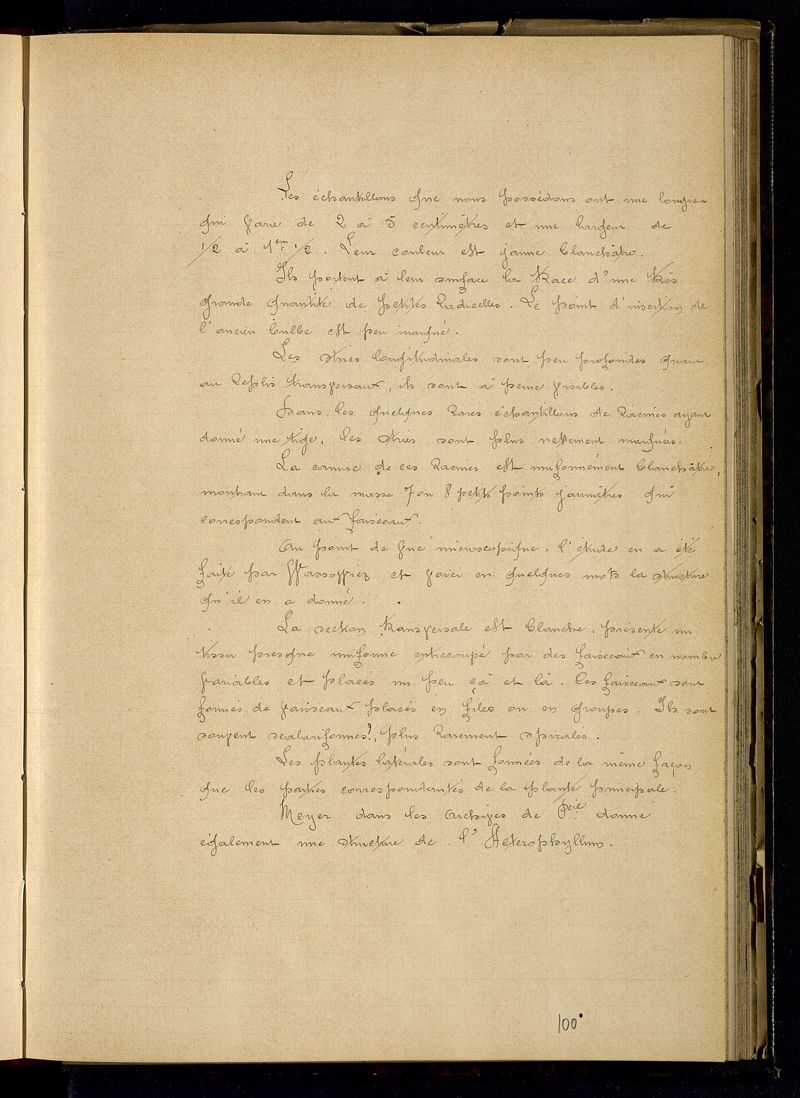 Les échantillons que nous possédons ont une longueur
qui varie de 2 à 5 centimètres et une largeur de
1/2 à 1cm 1/2. Leur couleur est jaune blanchâtre.
Ils portent à leur surface la trace d'une très
grande quantité de petites Radicelles. Le point d'insertion de
l'ancien bulbe est peu marqué.
Les stries longitudinales sont peu profondes quant
au Replis transversaux, ils sont à peine visibles.
Dans les quelques Rares échantillons de Racines ayant
donné une tige, les stries sont plus nettement marquées.
La cassure de ces Racines est uniformément blanchâtre,
montrant dans la masse 7 ou 8 petits points jaunâtres qui
correspondent aux faisceaux.
Au point de vue microscopique, l'étude en a été
faite par Wassowiez et voici en quelques mots la structure
qu'il en a donné.
La section transversale est blanche, présente un
tissu presque uniforme entrecoupé par des faisceaux en nombre
variables et placés un peu çà et là. Ces faisceaux sont
formés de vaisseaux placés en files ou en groupes. Ils sont
souvent scalariformes, plus Rarement spiralés.
Les plantes latérales sont formées de la même façon
que les parties correspondantes de la plante principale.
Meyer dans les Archives de Pcie donne
également une structure de l'Heterophyllum.
100